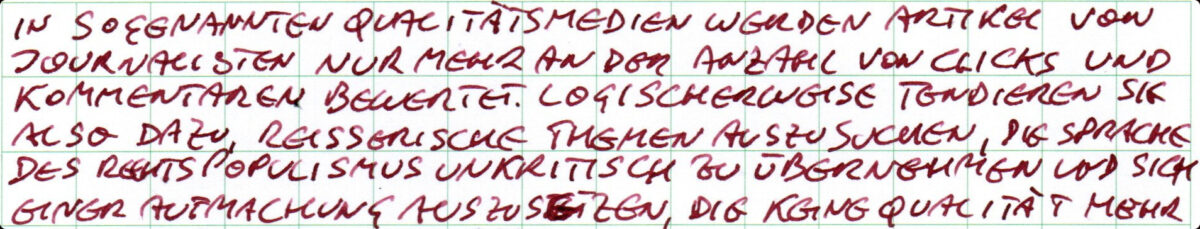 IN SOGENANNTEN QUALITÄTSMEDIEN WERDEN ARTIKEL VON
JOURNALISTEN NUR MEHR AN DER ANZAHL VON CLICKS UND
KOMMENTAREN BEWERTET. LOGISCHERWEISE TENDIEREN SIE
ALSO DAZU, REISSERISCHE THEMEN AUSZUSUCHEN, DIE SPRACHE
DES RECHTSPOPULISMUS UNKRITISCH ZU ÜBERNEHMEN UND SICH
EINER AUFMACHUNG AUSZUSETZEN, DIE KEINE QUALITÄT MEHR